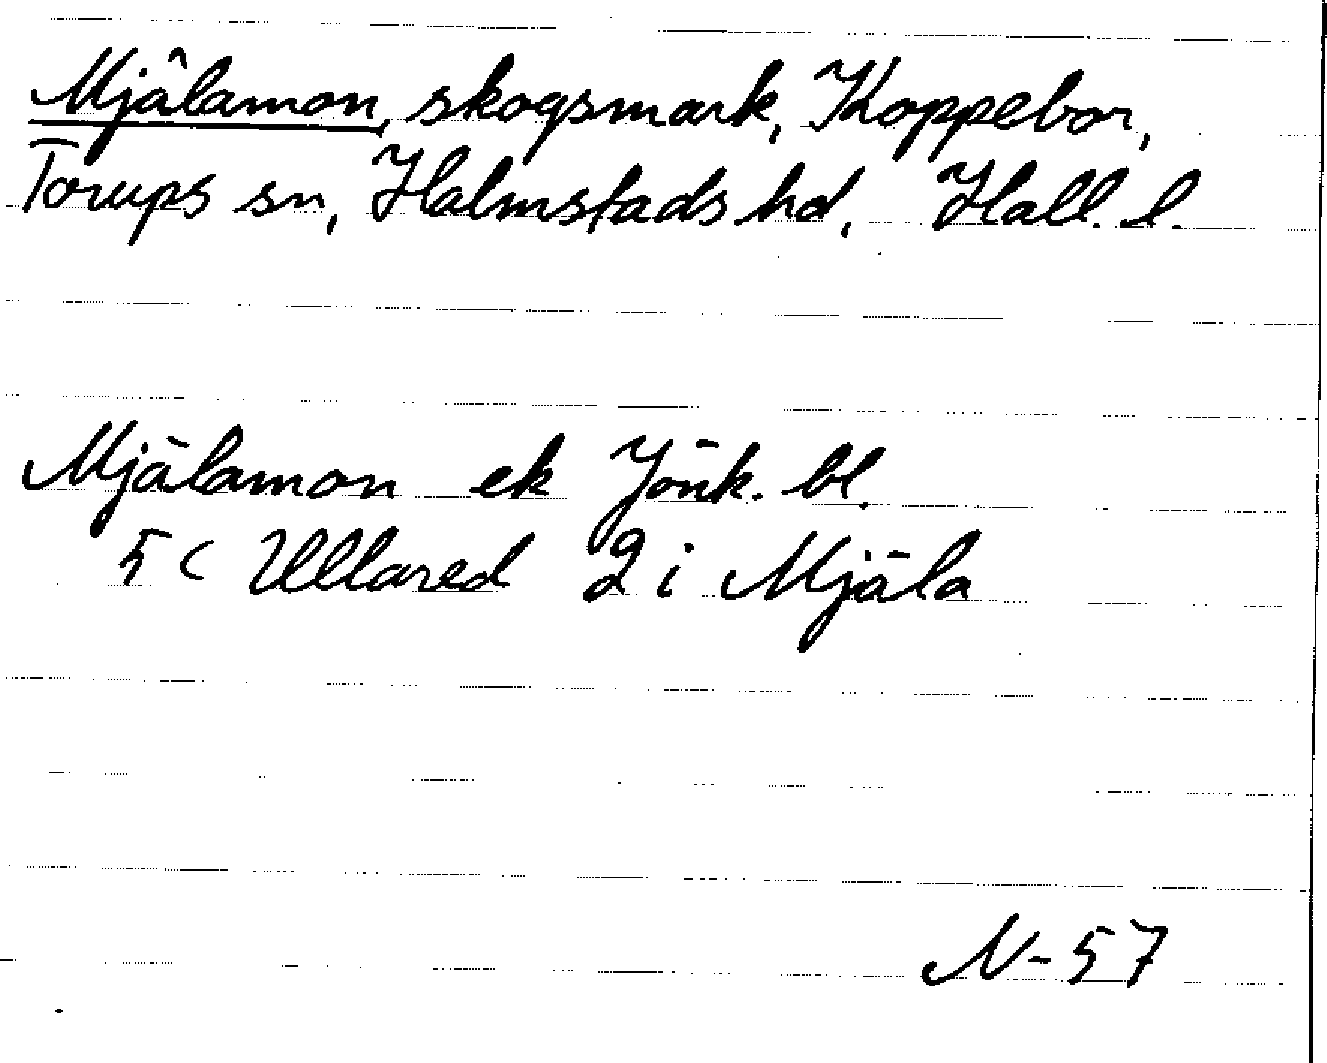 Mjälamon, skogsmark, Koppebor,
Torups sn, Halmstads hd, Hall. l.
Mjälamon ek Jönk. bl.
5 C Ullared 2 i Mjäla
N-57